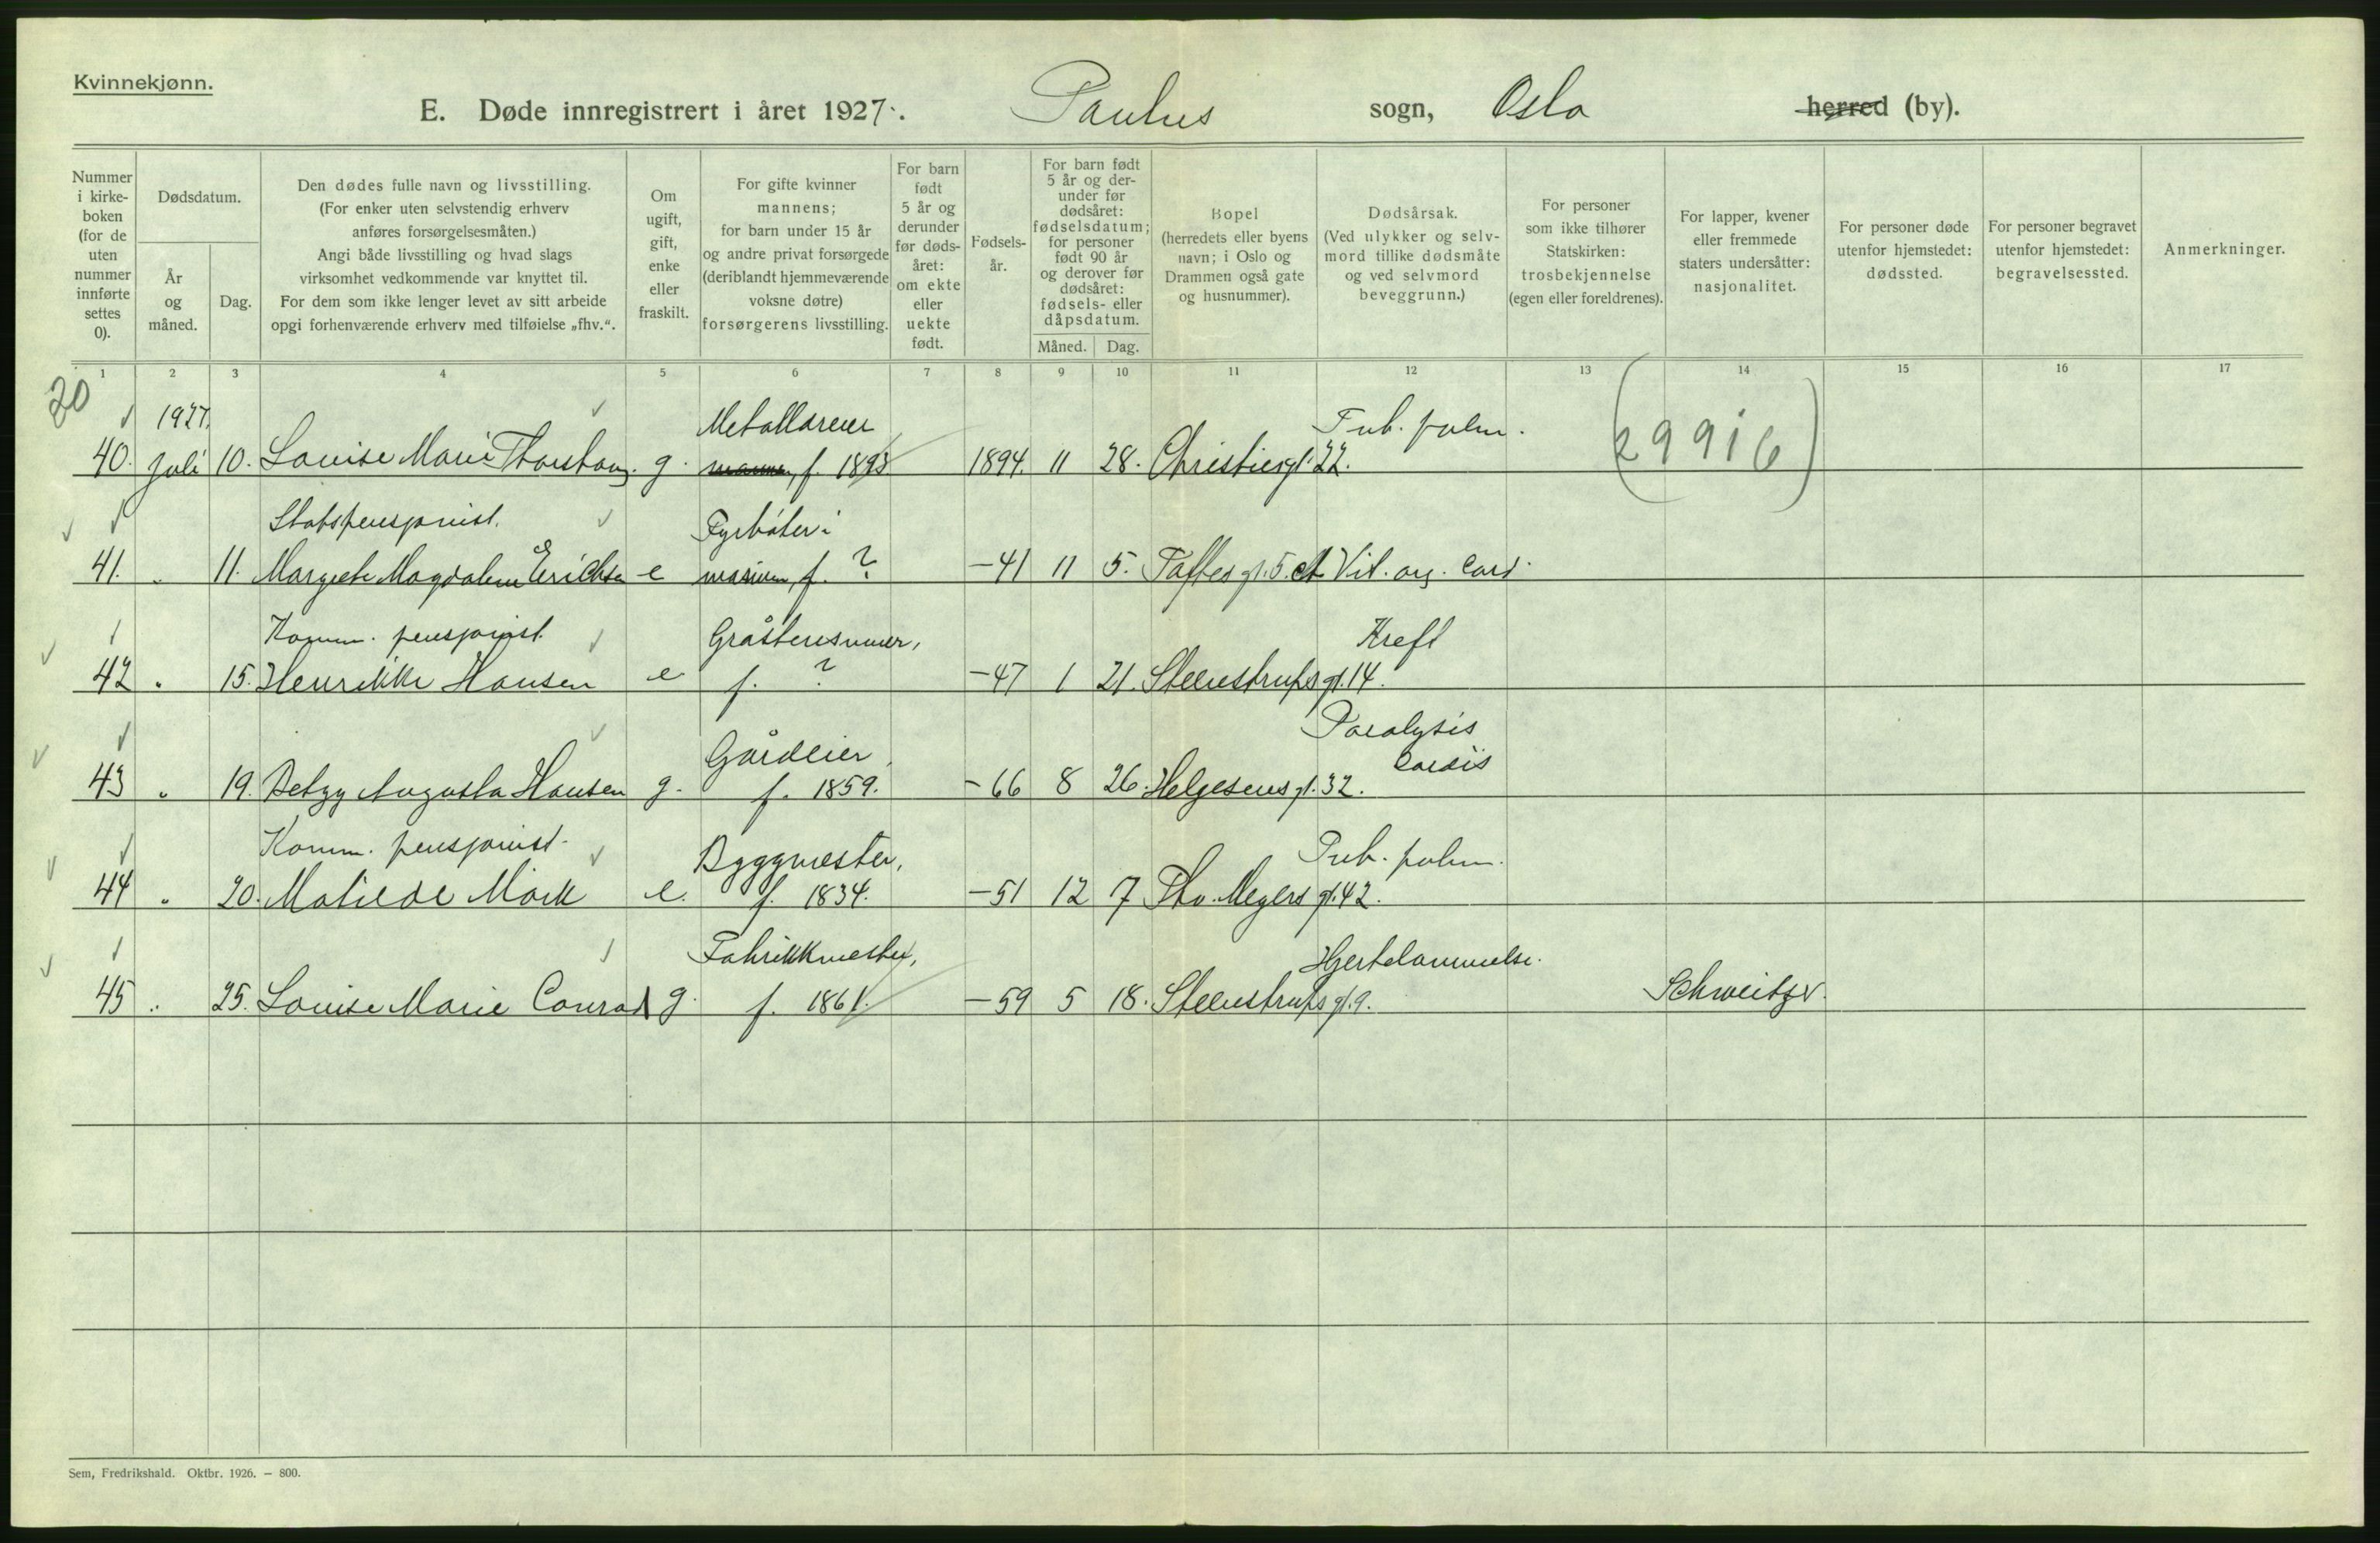 Kvinnekjønn.
E. Døde innregistrert i året 1927. Paulus sogn, Oslo herred (by).
Nummer i kirke-boken (for de uten nummer innførte settes 0).
Dødsdatum.
År og måned.
Dag.
Den dødes fulle navn og livsstilling.
(For enker uten selvstendig erhverv
anføres forsørgelsesmåten.)
Angi både livsstilling og hvad slags
virksomhet vedkommende var knyttet til.
For dem som ikke lenger levet av sitt arbeide
opgi forhenværende erhverv med tilføielse „fhv.“.
Om
ugift,
gift,
enke
eller
fraskilt.
For gifte kvinner
mannens;
for barn under 15 år
og andre privat forsørgede
(deriblandt hjemmeværende
voksne døtre)
forsørgerens livsstilling.
For barn
født
5 år og
derunder
før døds-
året:
om ekte
eller
uekte
født.
Fødsels-
år.
For barn født
5 år og der-
under før
dødsåret:
fødselsdatum;
for personer
født 90 år
og derover før
dødsåret:
fødsels- eller
dåpsdatum.
Måned. Dag.
Bopel
(herredets eller byens
navn; i Oslo og
Drammen også gate
og husnummer).
Dødsårsak.
(Ved ulykker og selv-
mord tillike dødsmåte
og ved selvmord
beveggrunn.)
For personer
som ikke tilhører
Statskirken:
trosbekjennelse
(egen eller foreldrenes).
For lapper, kvener
eller fremmede
staters undersåtter:
nasjonalitet.
For personer døde
utenfor hjemstedet:
dødssted.
For personer begravet
utenfor hjemstedet:
begravelsessted.
Anmerkninger.
1 2 3 4 5 6 7 8 9 10 11 12 13 14 15 16 17
20
1927. Tub. pulm.
40. Juli 10. Louise Marie g. f. 1893 1894 11 28. Christiesgt. 22. (29916)
Statspensjonist. Fyrbøter i
41. " 11. Margrete Magdalene Erichsen e marinen, f. ? -41 11 5. Toftes gt. 5. Vit. org. cord.
Komm. pensjonist. Gråstensmurer, Kreft
42 " 15. Henrikke Hansen e f. ? -47 1 21. Steenstrups gt. 14.
Gårdeier, Paralysis cordis
43 " 19. Betzy Augusta Hansen g. f. 1859. -66 8 26. Helgesens gt. 32.
Komm. pensjonist. Byggmester, Tub. pulm.
44 " 20. Matilde Mørk e. f. 1834. -51 12 7 Thv. Meyers gt. 42.
Fabrikkmester, Hjertelammelse.
45 " 25. Louise Marie Conrad g. f. 1861. -59 5 18. Steenstrups gt. 9. Schweitzer.
Sem, Fredrikshald. Oktbr. 1926. — 800.